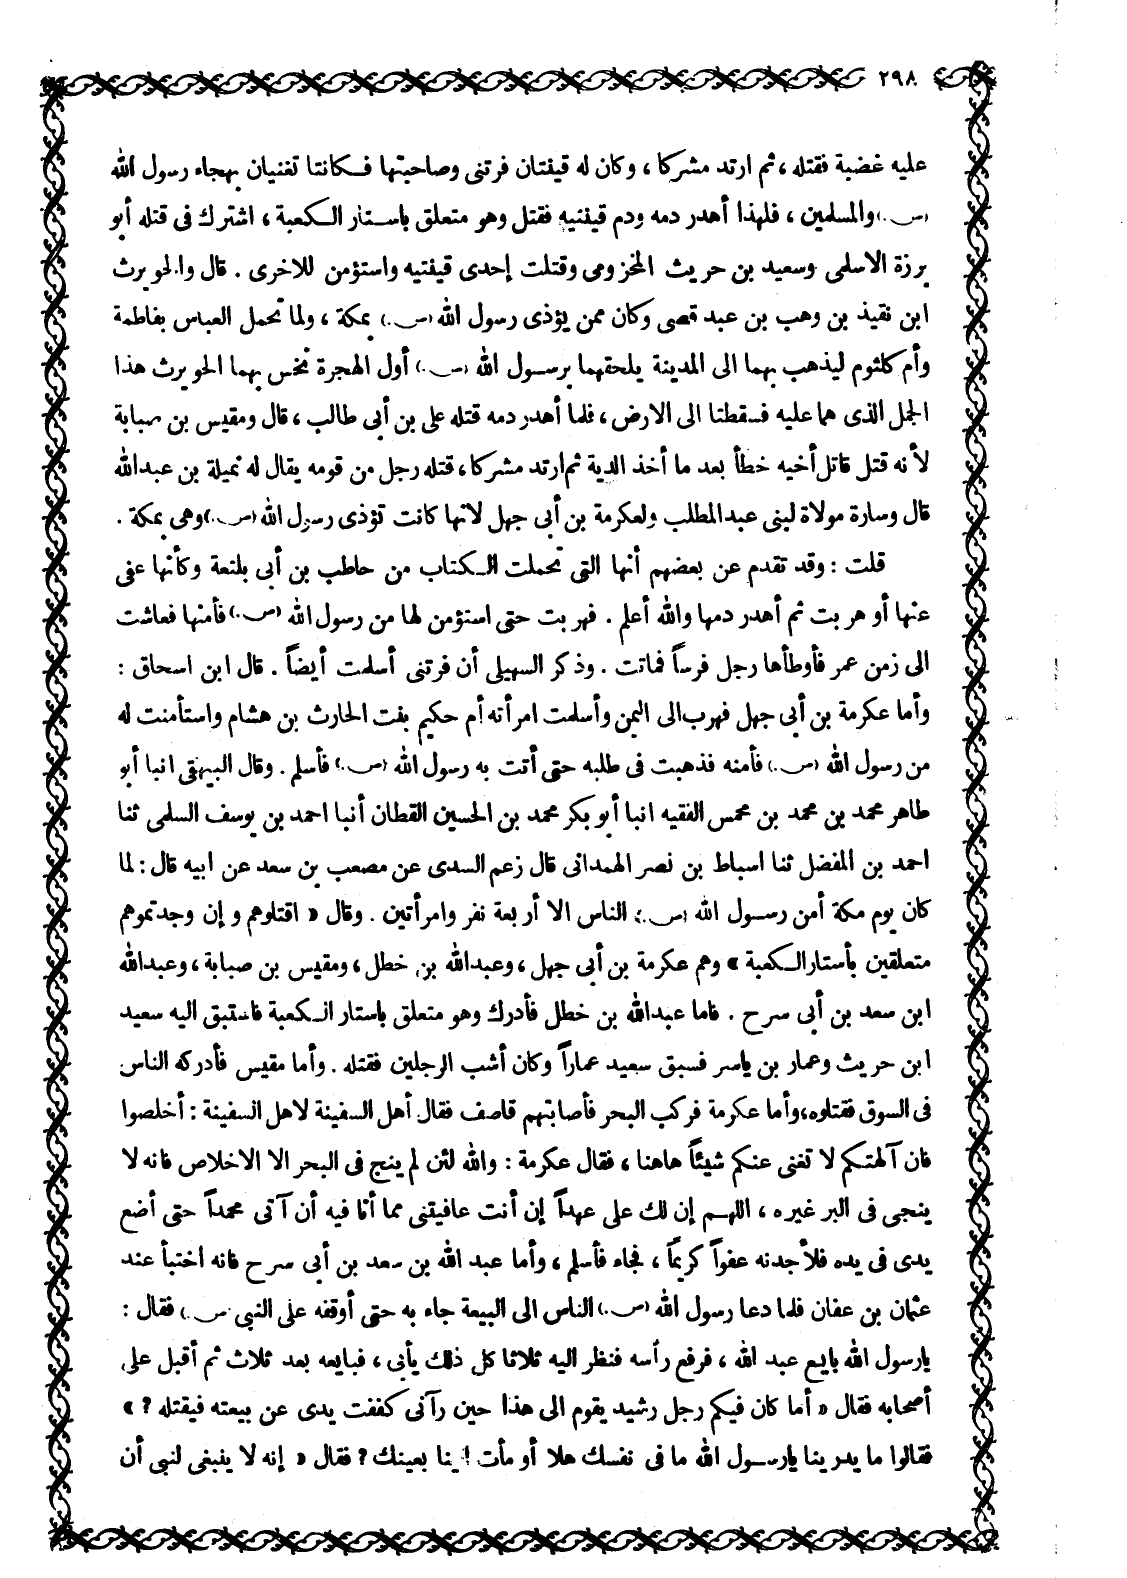 ٢٩٨
عليه غضبة فقتله ، ثم ارتد مشركا ، وكان له قينتان فرتنى وصاحبتها فكانتا تغنيان بهجاء رسول الله
(ص) والمسلمين ، فلهذا أهدر دمه ودم قينتيه فقتل وهو متعلق باستار الكعبة ، اشترك فى قتله أبو
برزة الاسلمى وسعيد بن حريث المخزومى وقتلت إحدى قينتيه واستؤمن للاخرى . قال والحويرث
ابن نقيذ بن وهب بن عبد قصى وكان ممن يؤذى رسول الله (ص) بمكة ، ولما تحمل العباس بفاطمة
وأم كلثوم ليذهب بهما الى المدينة يلحقهما برسول الله (ص) أول الهجرة نخس بهما الحويرث هذا
الجمل الذى هما عليه فسقطتا الى الارض ، فلما أهدر دمه قتله على بن أبى طالب ، قال ومقيس بن صبابة
لأنه قتل قاتل أخيه خطأ بعد ما أخذ الدية ثم ارتد مشركا ، قتله رجل من قومه يقال له نميلة بن عبدالله
قال وسارة مولاة لبنى عبدالمطلب ولعكرمة بن أبى جهل لانها كانت تؤذى رسول الله (ص) وهى بمكة .
قلت : وقد تقدم عن بعضهم أنها التى تحملت الكتاب من حاطب بن أبى بلتعة وكأنها عفى
عنها أو هربت ثم أهدر دمها والله أعلم . فهربت حتى استؤمن لها من رسول الله (ص) فأمنها فعاشت
الى زمن عمر فأوطأها رجل فرساً فماتت . وذكر السهيلى أن فرتنى أسلمت أيضاً . قال ابن اسحاق :
وأما عكرمة بن أبى جهل فهرب الى اليمن وأسلمت امرأته أم حكيم بنت الحارث بن هشام واستأمنت له
من رسول الله (ص) فأمنه فذهبت فى طلبه حتى أتت به رسول الله (ص) فأسلم . وقال البيهقى انبا أبو
طاهر محمد بن محمد بن محمس الفقيه انبا أبو بكر محمد بن الحسين القطان أنبا احمد بن يوسف السلمى ثنا
احمد بن المفضل ثنا اسباط بن نصر الهمدانى قال زعم السدى عن مصعب بن سعد عن ابيه قال : لما
كان يوم مكة أمن رسول الله (ص) الناس الا أربعة نفر وامرأتين . وقال « اقتلوهم و إن وجدتموهم
متعلقين بأستار الكعبة » وهم عكرمة بن أبى جهل ، وعبدالله بن خطل ، ومقيس بن صبابة ، وعبدالله
ابن سعد بن أبى سرح . فاما عبدالله بن خطل فأدرك وهو متعلق باستار الكعبة فاستبق اليه سعيد
ابن حريث وعمار بن ياسر فسبق سعيد عماراً وكان أشب الرجلين فقتله . وأما مقيس فأدركه الناس
فى السوق فقتلوه ، وأما عكرمة فركب البحر فأصابتهم قاصف فقال أهل السفينة لاهل السفينة : أخلصوا
فان آلهتكم لا تغنى عنكم شيئاً هاهنا ، فقال عكرمة : والله لئن لم ينج فى البحر الا الاخلاص فانه لا
ينجى فى البر غيره ، اللهم إن لك على عهداً إن أنت عافيتنى مما أنا فيه أن آتى محمداً حتى أضع
يدى فى يده فلأجدنه عفواً كريماً ، فجاء فأسلم ، وأما عبد الله بن سعد بن أبى سرح فانه اختبأ عند
عثمان بن عفان فلما دعا رسول الله (ص) الناس الى البيعة جاء به حتى أوقفه على النبى (ص) فقال :
يارسول الله بايع عبد الله ، فرفع رأسه فنظر اليه ثلاثا كل ذلك يأبى ، فبايعه بعد ثلاث ثم أقبل على
أصحابه فقال « أما كان فيكم رجل رشيد يقوم الى هذا حين رآنى كففت يدى عن بيعته فيقتله ? »
فقالوا ما يدرينا يارسول الله ما فى نفسك هلا أومأت الينا بعينك ? فقال « إنه لا ينبغى لنبى أن